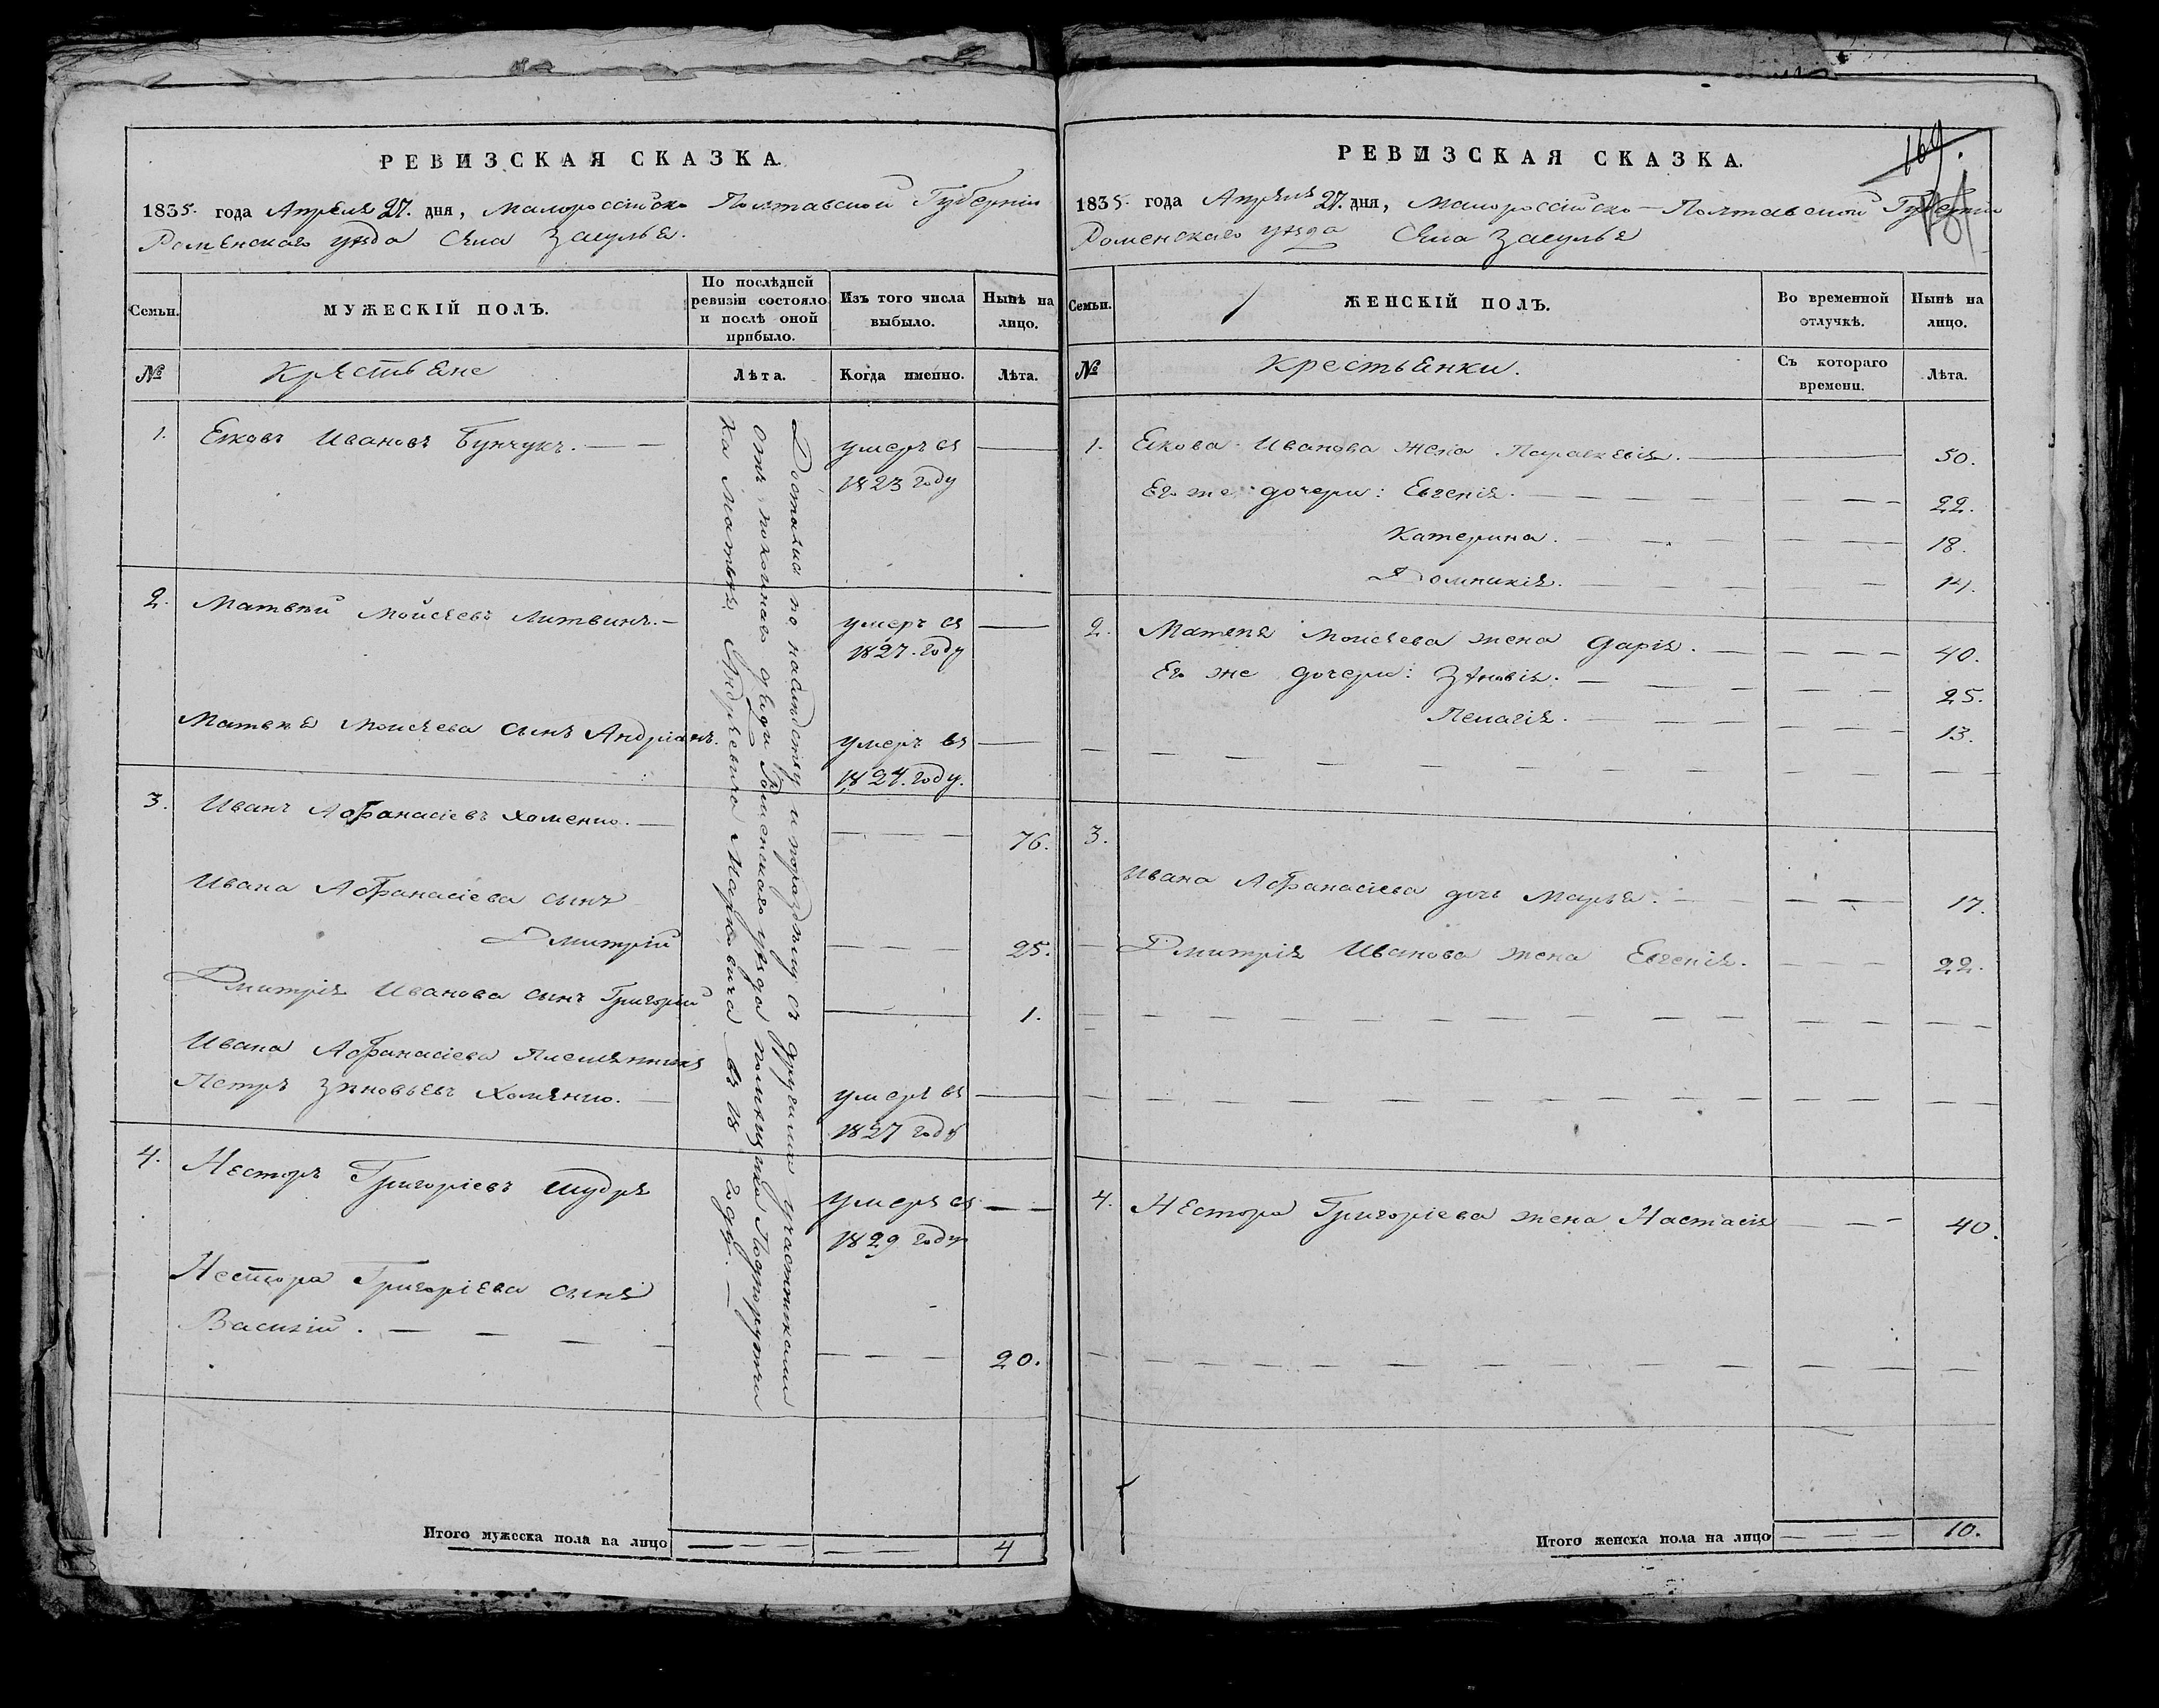 РЕВИЗСКАЯ СКАЗКА.
1835. года Апреля 27. дня, Малороссійско Полтавской Губерніи
Роменского уѣзда Села Засулья.
Семьи.
МУЖЕСКІЙ ПОЛЪ.
По послѣдней ревизіи состояло и послѣ оной прибыло.
Изъ того числа выбыло.
Нынѣ на лицо.
№
Крестьяне
Лѣта.
Когда именно.
Лѣта.
Досталися по наследству и поразделу съ другими участниками
отъ покойнаго Роменскаго уѣзда помѣщика Подпоручика
Марковича въ 18 годѣ. —
1. Яковъ Ивановъ Бунчукъ. — — умеръ въ —
1823 году
2. Матвѣй Мойсѣевъ Литвинъ. — умеръ въ —
1827. году
Матвѣя Моисѣева сынъ Андріянъ. умеръ въ —
1824. году.
3. Иванъ Афанасіевъ Хоменко. — — — — 76.
Ивана Афанасіева сынъ
Дмитрій — — — 25.
Дмитрія Иванова сынъ Григорій — 1.
Ивана Афанасіева племянникъ
Петръ Зѣновьевъ Хоменко. — умеръ въ —
1827 году
4. Несторъ Григоріевъ Шудря умеръ въ — —
1829 году
Нестора Григоріева сынъ
Василій. — — — — — — — 20.
Итого мужеска пола на лицо — — — — — 4
РЕВИЗСКАЯ СКАЗКА.
169.
1835. года Апрѣля 27. дня, Малороссійско-Полтавской Губерніи
Роменскаго уѣзда Села Засулья
Семьи.
ЖЕНСКІЙ ПОЛЪ.
Во временной отлучкѣ.
Нынѣ на лицо.
№
Крестьянки.
Съ котораго времени.
Лѣта.
1. Якова Иванова жена Параскевія. — — 50.
Его же дочери: Евгенія. — — — 22.
Катерина. — — — 18.
Домникія. — — — 14.
2. Матвѣя Моисѣева жена Дарія. — — — — 40.
Его же дочери: Зѣновія. — — — 25.
Пелагія. — — — 13.
3.
Ивана Афанасіева дочь Марья. — — — 17.
Дмитрія Иванова жена Евгенія. — — — 22.
4. Нестора Григоріева жена Настасія — — — 40.
Итого женска пола на лицо — — — 10.